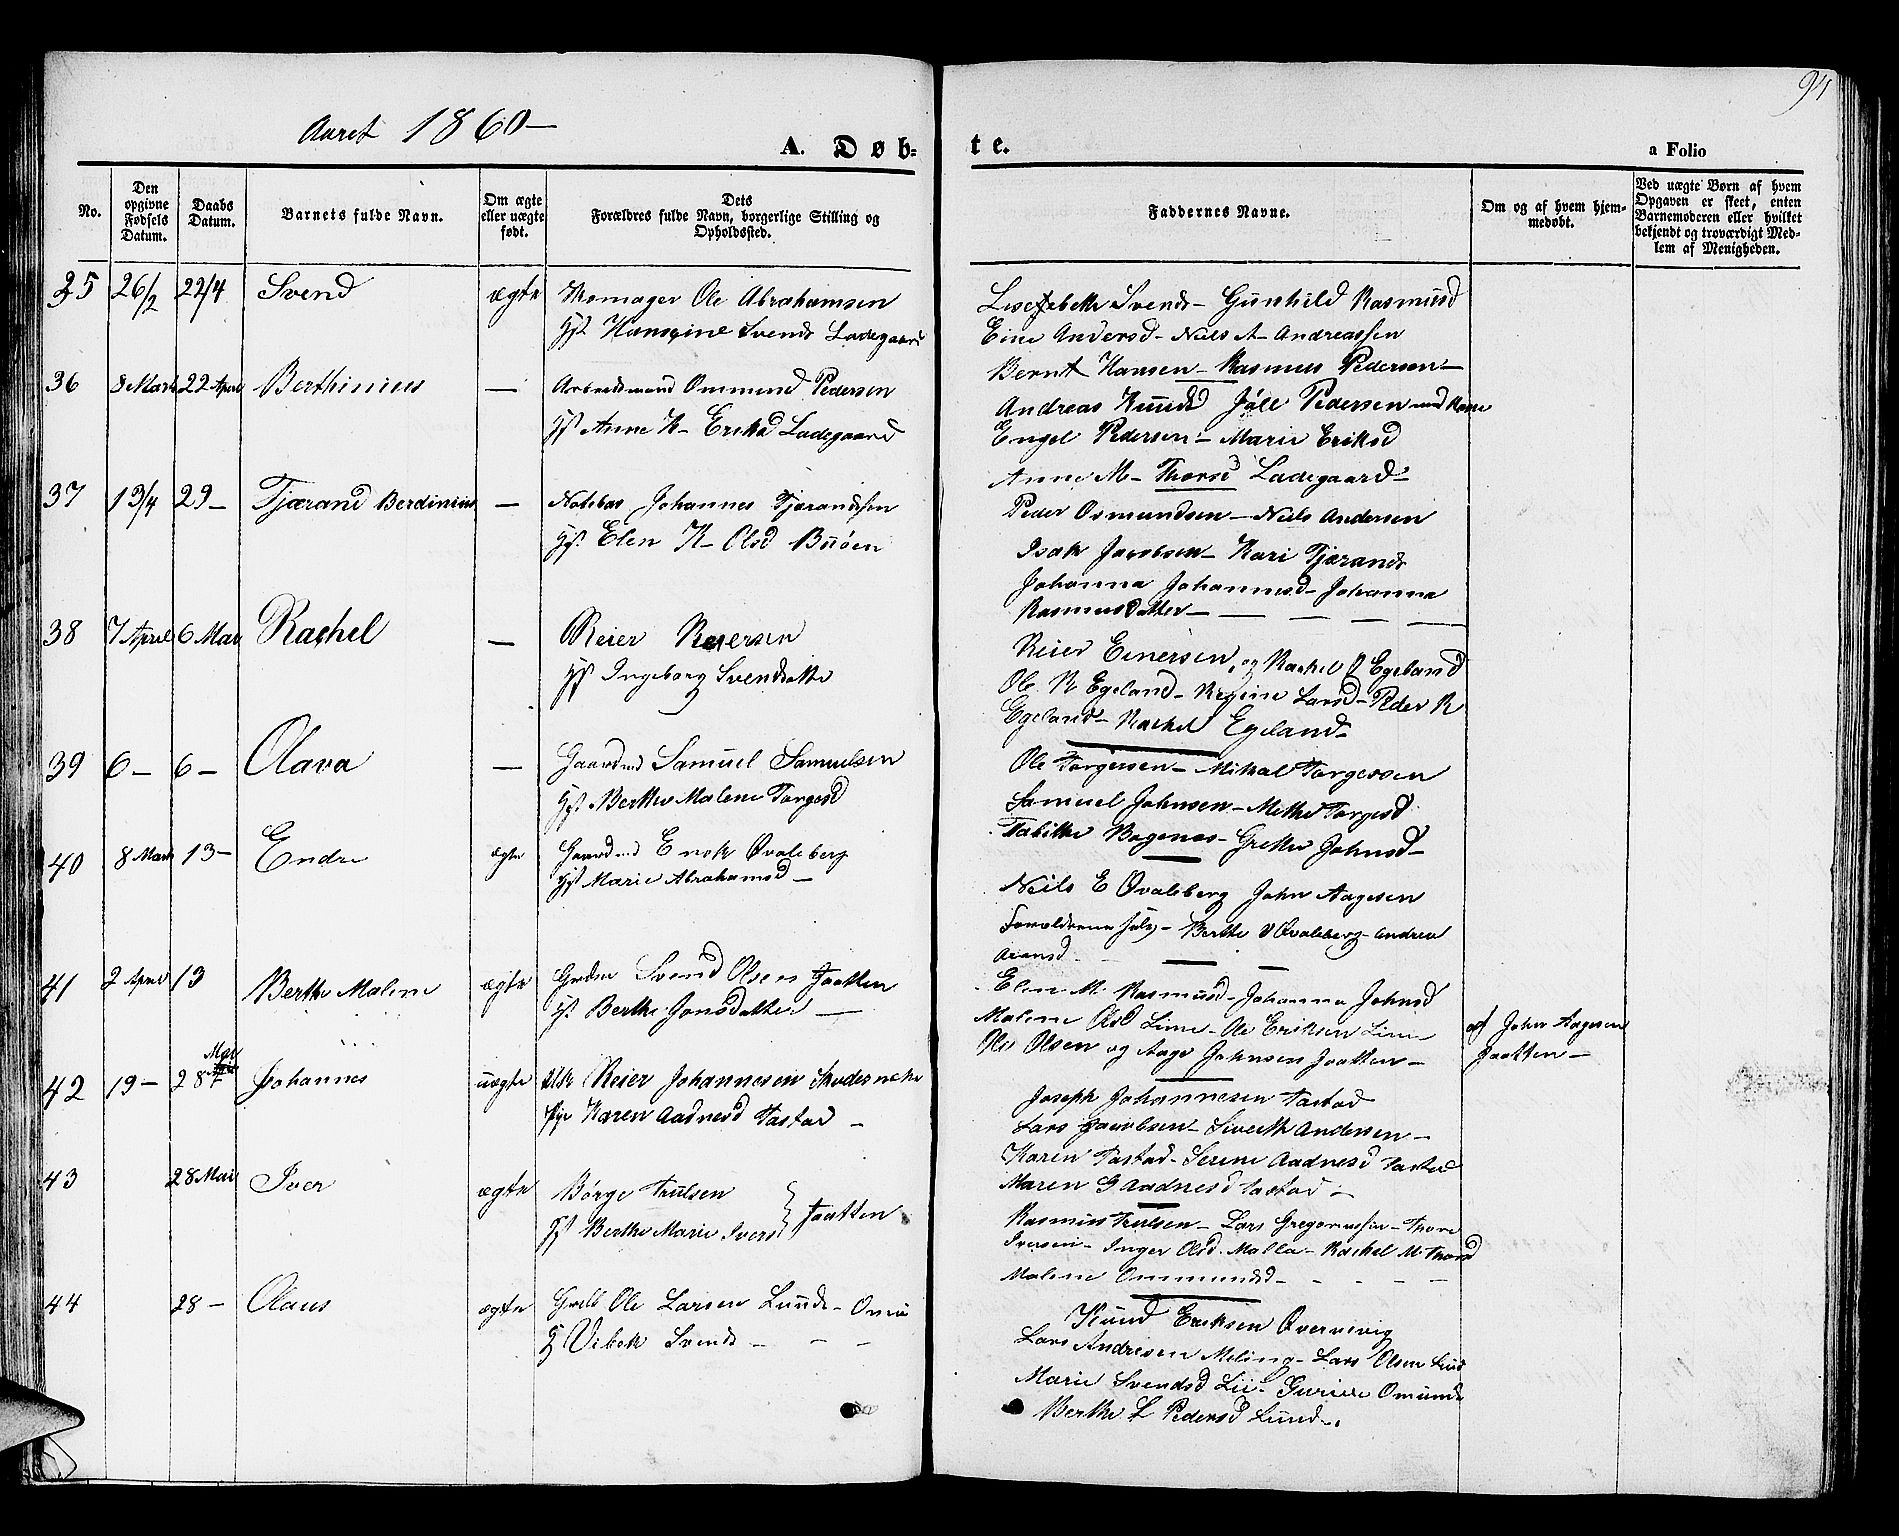 94
Aaret 1860 —
A. Døb-
te.
a Folio
No.
Den opgivne Fødsels Datum.
Daabs Datum.
Barnets fulde Navn.
Om ægte eller uægte født.
Dets Forældres fulde Navn, borgerlige Stilling og Opholdssted.
Faddernes Navne.
Om og af hvem hjemmedøbt.
Ved uægte Børn af hvem Opgaven er skeet, enten Barnemoderen eller hvilket bekjendt og troværdigt Medlem af Menigheden.
35 26/2 22/4 Svend ægte Ole Abrahamsen
Hansine Svends Ladegaard
Svends - Gunhild Rasmusd
Anders - Niels A - Andreassen
Bernt Hansen - Rasmus Pedersen -
36 8 Marts 22 April Berthinius — Arbeidsmand Ommund Pedersen
Anne K - Eriksd Ladegaard
Andreas Knuds Pedersen
Engel Pedersen - Marie Eriksd
Anne M - Thorsd Ladegaard -
37 13/4 29 - Tjærand Berdinius — Johannes Tjærandsen
Elen K - Olsd Buøen
Peder Osmundsen - Niels Andersen
Isak Jacobsen - Kari Tjærands
Johanna Johannesd - Johanna
Rasmusdatter -
38 7 April 6 Mai Rachel — Reier Reiersen
Ingeborg Svendsatte
Reier Einersen og Rachel Egeland
Ole R Egeland - Regine Larsd - Peder R
Egeland - Rachel Egeland -
39 6 - 6 - Olava — Gaardmd Samuel Samuelsen
Berthe Malene Torgesd
Ole Torgersen - Mikal Torgersen
Samuel Johnsen - Methe Torgesd
Tabithe Bogenes - Grethe Johnsd -
40 8 Marts 13 - Endre ægte Gaardmd Enok Qvaleberg
Marie Abrahamsd -
Neils E Qvaleberg John Aagesen
Forældrene selv - Berthe Qvaleberg - Andrea
41 2 April 13 Berthe Malene ægte Svend Olsen Jaatten
Berthe Jonsdatter -
Elen M. Rasmusd - Johanna Johnsd
Malene Olsd Lime - Ole Eriksen Lime
Ole Olsen og Aage Johnsen Jaatten -
af John Aagesen
Jaatten -
42 19 - 28 Mai Johannes uægte Reier Johannesen
Pige Karen Aadnesd Tastad -
Joseph Johannesen Tastad
Lars Jacobsen - Siverth Andersen -
Karen Tastad - Serine Aadnesd Tastad
Maren G Aadnesd Tastad -
43 28 Mai Iver ægte Børge Trulsen
Berthe Marie Ivers } Jaatten
Rasmus Trulsen - Lars Gregoriussen - Thore
Iversen - Inger Olsd. Malla - Rachel M. Thorsd
Malene Ommundsd -
44 28 - Olaus ægte Ole Larsen Lunde -
Vibek Svends -
Knud Eriksen
Lars Andresen Meling - Lars Olsen
Marie Svendsd Lie -
Berthe L Pedersd Lund -